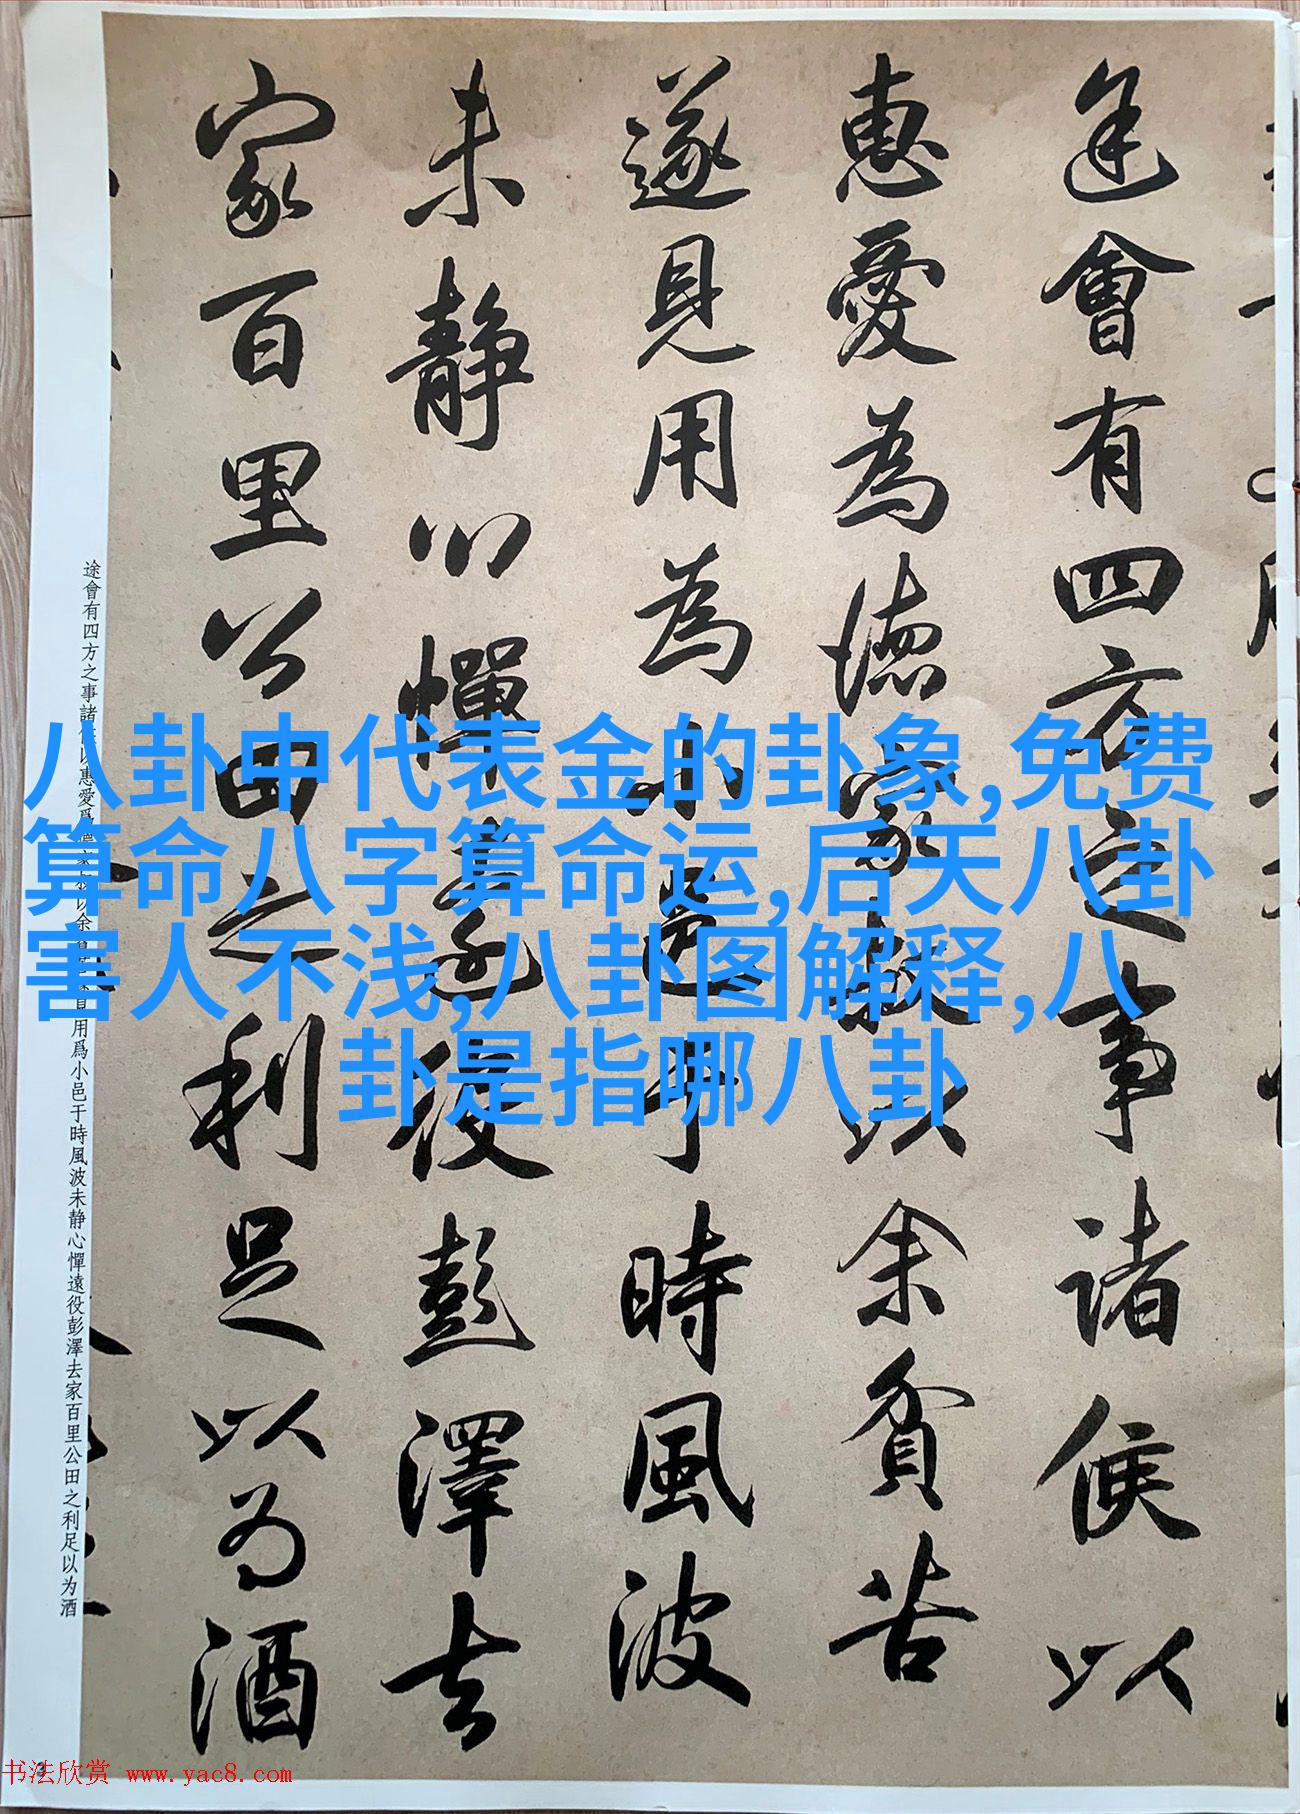 途會有四方之事諸侯以
惠愛為德家叔以余貧苦
遂見用為小邑于時風波
未靜心憚遠役彭澤去
家百里公田之利足以為酒
途會有四方之事諸侯以惠愛爲德家叔以余貧苦遂見用爲小邑于時風波未靜心憚遠役彭澤去家百里公田之利足以为酒
八卦中代表金的卦象,免费
算命八字算命运,后天八卦
害人不浅,八卦图解释,八
卦是指哪八卦
书法欣赏 www.yac8.com